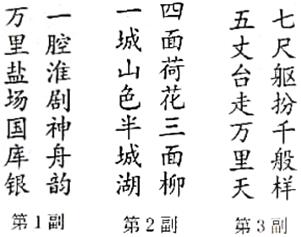 一腔淮剧神舟韵
万里盐场国库银
第1副
四面荷花三面柳
一城山色半城湖
第2副
七尺躯扮千般样
五丈台走万里天
第3副